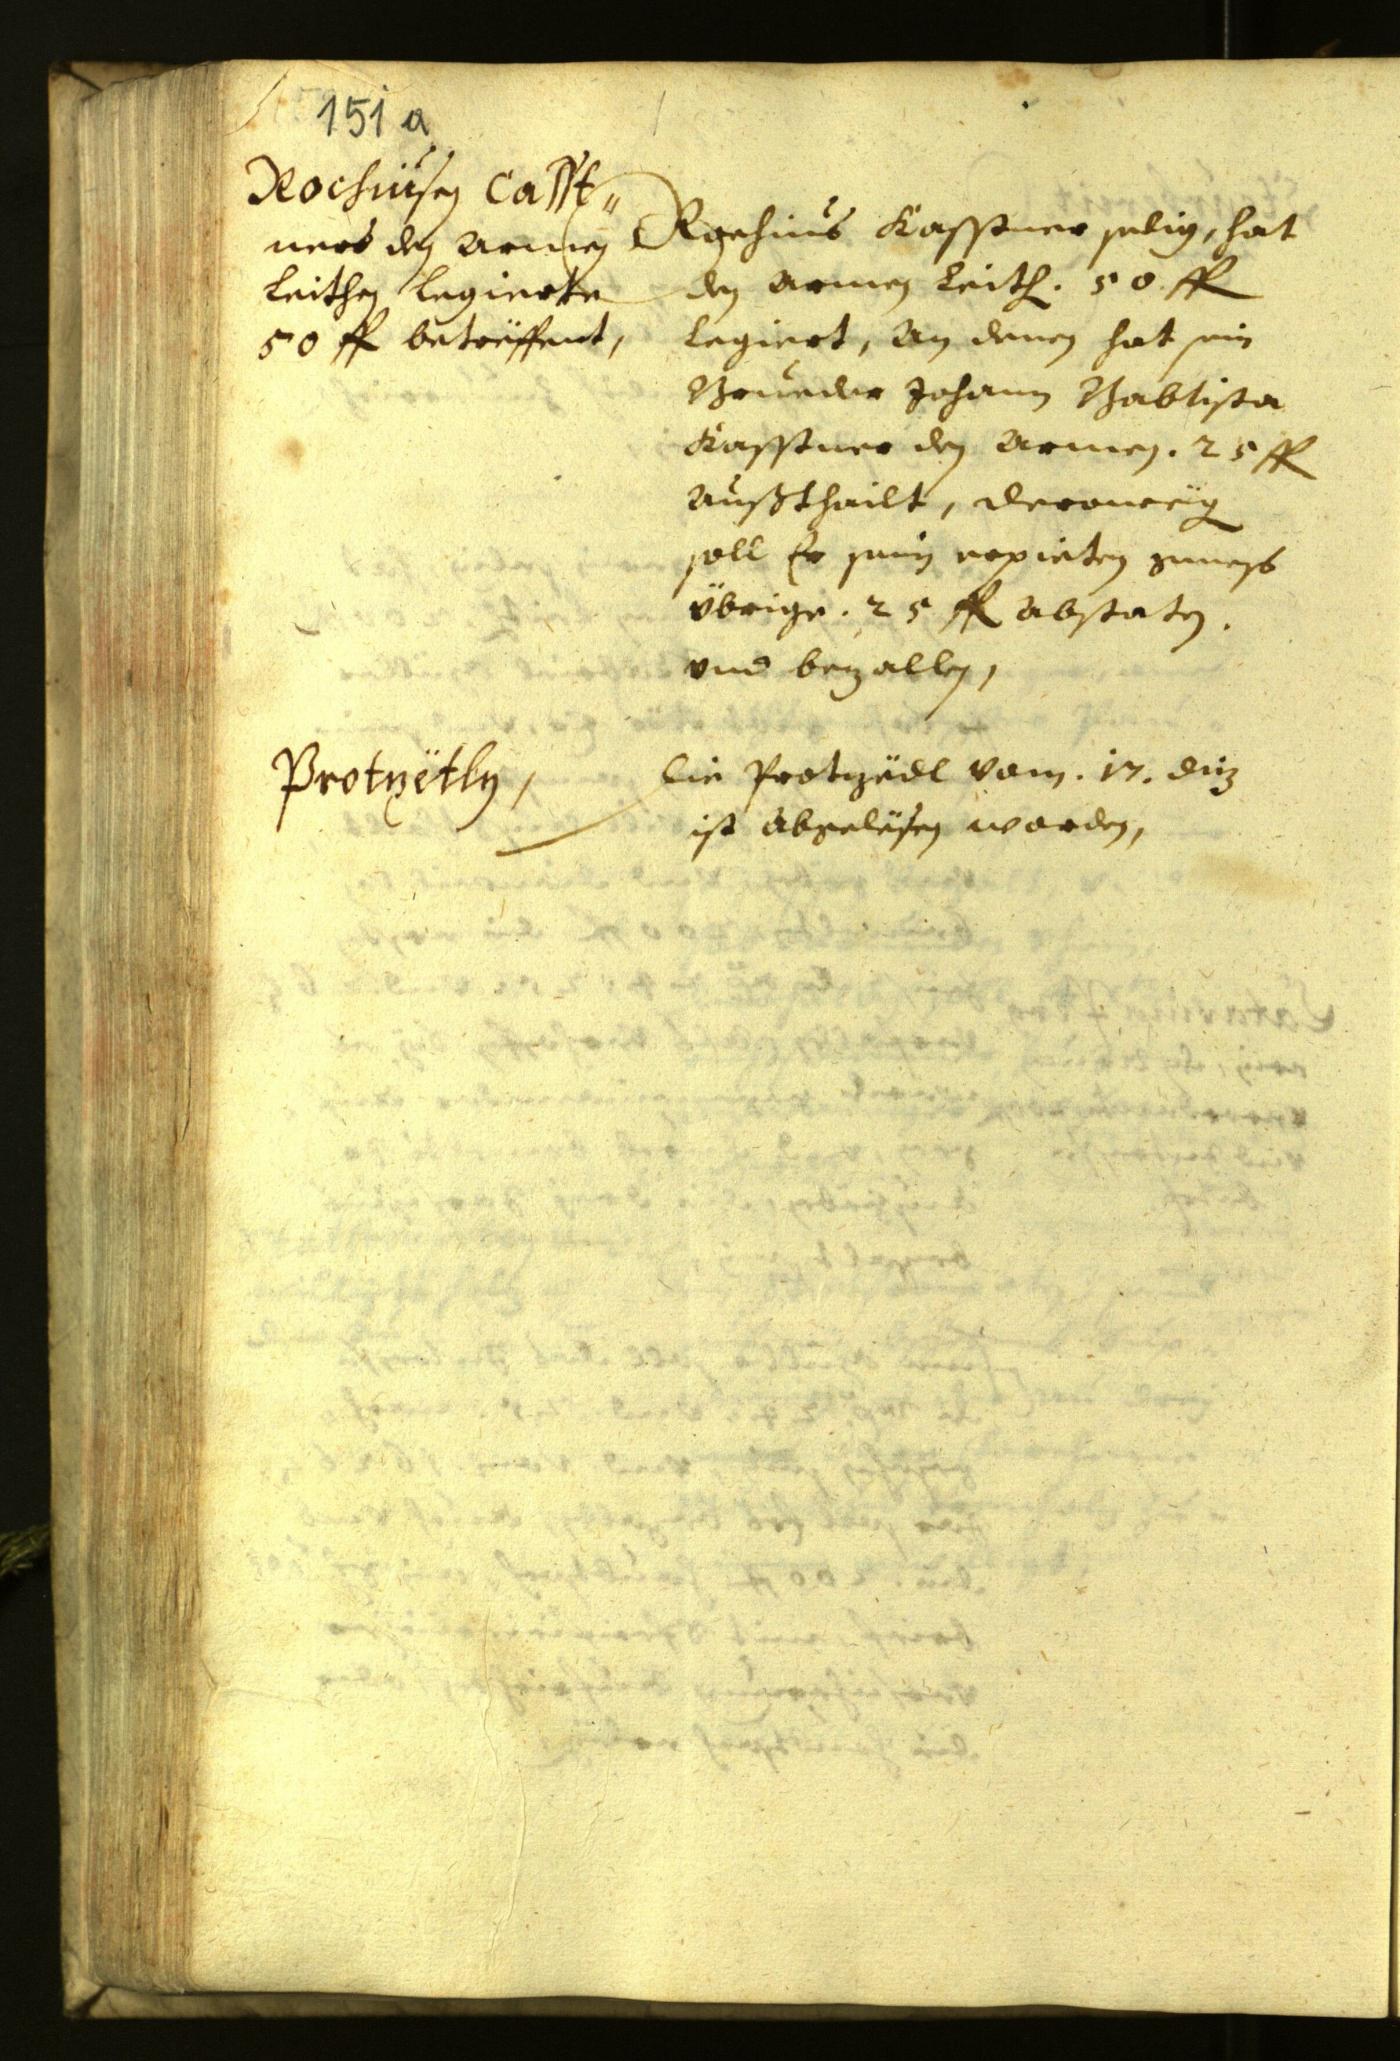 151 a
Rochiusen Casst„
ners den Armen
Leithen legierte
50 fl betrëffent,
Rochius Kasstner selig, hat
den Armen Leith. 50 fl
legiert, An denen hat sein
Brueder Johann Babtista
Kasstner den Armen. 25 fl
Außthailt, derowegen
soll Er sein
übrige. 25 fl Abstaten.
vnd bezallen,
Protzëtln,
Die Protzëdl vom. 17. diz
ist Abgelësen worden,